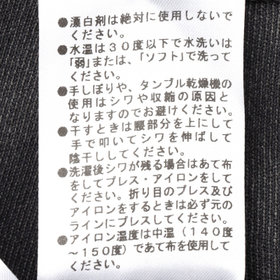 ●漂白剤は絶対に使用しないで
ください。
●水温は30度以下で水洗いは
「弱」または、「ソフト」で洗って
ください。
●手しぼりや、タンブル乾燥機の
使用はシワや収縮の原因と
なりますのでお避けください。
●干すときは腰部分を上にして
手で叩いてシワを伸ばして
陰干ししてください。
●洗濯後シワが残る場合はあて布
をしてプレス・アイロンをしてく
ださい。折り目のプレス及び
アイロンをするときは必ず元の
ラインにプレスしてください。
●アイロン温度は中温(140度
～150度)であて布を使用して
ください。